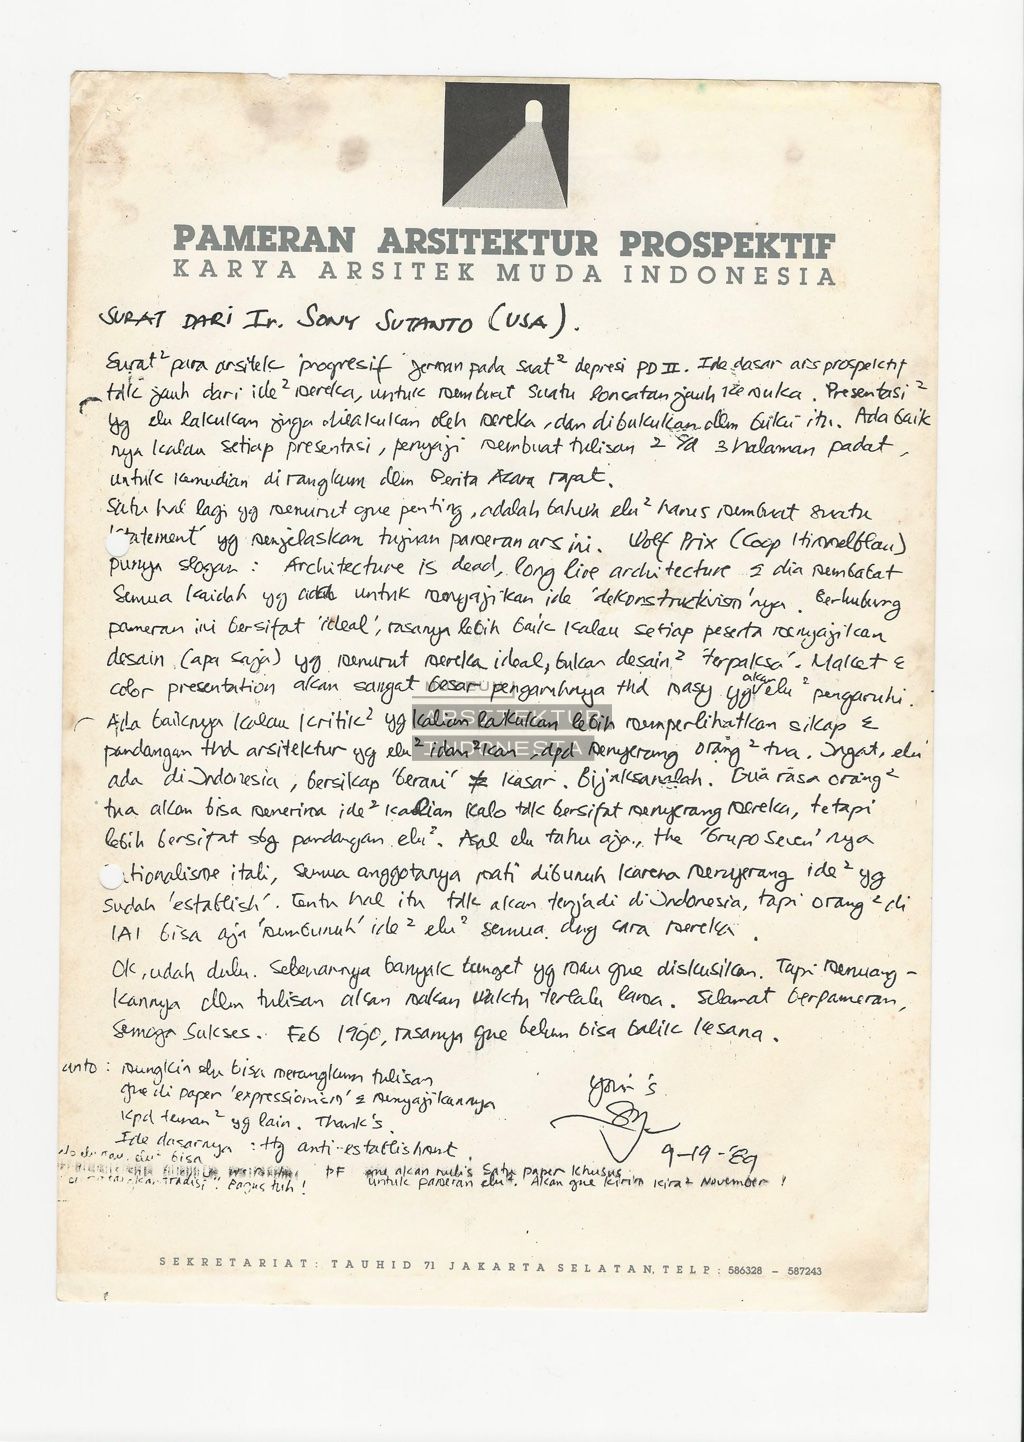 PAMERAN ARSITEKTUR PROSPEKTIF
KARYA ARSITEK MUDA INDONESIA
SURAT DARI Ir. SONY SUTANTO (USA).
Surat² para arsitek 'progresif' Jerman pada saat² depresi PD II. Ide dasar ars prospektif
tdk jauh dari ide² mereka, untuk membuat suatu loncatan jauh ke muka. Presentasi²
yg elu lakukan juga dilakukan oleh mereka, dan dibukukan dlm buku itu. Ada baik
nya kalau setiap presentasi, penyaji membuat tulisan 2 s/d 3 halaman padat,
untuk kemudian di rangkum dlm Berita Acara rapat.
Satu hal lagi yg menurut gue penting, adalah bahwa elu² harus membuat suatu
'statement' yg menjelaskan tujuan pameran ars ini. Wolf Prix (Coop Himmelblau)
punya slogan : Architecture is dead, long live architecture & dia membabat
semua kaidah yg ada untuk menyajikan ide 'dekonstructivism'nya. Berhubung
pameran ini bersifat 'ideal', rasanya lebih baik kalau setiap peserta menyajikan
desain (apa saja) yg menurut mereka ideal, bukan desain² 'terpaksa'. Maket &
color presentation akan sangat besar pengaruhnya thd masy yg akan elu² pengaruhi.
MUSEUM
ARSITEKTUR
INDONESIA
Ada baiknya kalau kritik² yg kalian lakukan lebih memperlihatkan sikap &
pandangan thd arsitektur yg elu² idam²kan, dpd menyerang orang² tua. Ingat, elu
ada di Indonesia, bersikap 'berani' ≠ kasar. Bijaksanalah. Gua rasa orang²
tua akan bisa menerima ide² kalian kalo tdk bersifat menyerang mereka, tetapi
lebih bersifat sbg pandangan elu². Asal elu tahu aja, the 'Grupo Seven' nya
rationalisme itali, semua anggotanya mati dibunuh karena menyerang ide² yg
sudah 'establish'. Tentu hal itu tdk akan terjadi di Indonesia, tapi orang² di
IAI bisa aja 'membunuh' ide² elu² semua dng cara mereka.
Ok, udah dulu. Sebenarnya banyak banget yg mau gue diskusikan. Tapi menuang-
kannya dlm tulisan akan makan waktu terlalu lama. Selamat berpameran,
semoga sukses. Feb 1990, rasanya gue belum bisa balik kesana.
anto : mungkin elu bisa merangkum tulisan
gue di paper 'expressionism' & menyajikannya
kpd teman² yg lain. Thank's.
Ide dasarnya : ttg anti-establishment.
your's
9-19-'89
elu bisa
tradisi". Bagus tuh!
gue akan nulis satu paper khusus
untuk pameran elu². Akan gue kirim kira² November!
SEKRETARIAT: TAUHID 71 JAKARTA SELATAN, TELP: 586328 - 587243